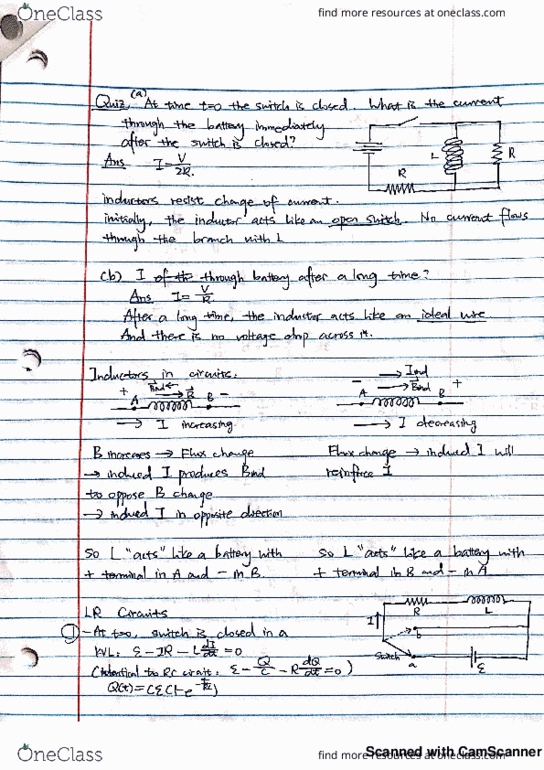 OneClass
find more resources at oneclass.com
Quiz (a) At time t=0 the switch is closed. What is the current
through the battery immediately
after the switch is closed?
Ans I = V/2R.
L
R
R
inductors resist change of current.
initially, the inductor acts like an open switch. No current flows
through the branch with L
(b) I of the through battery after a long time?
Ans I = V/R.
After a long time, the inductor acts like an ideal wire
And there is no voltage drop across it.
Inductors in circuits:
+ A Bind B B −
→ I increasing
→ Iind
− A → Bind B +
→ I decreasing
B increases → Flux change
→ induced I produces Bind
to oppose B change
→ induced I in opposite direction
Flux change → induced I will
reinforce I
So L "acts" like a battery with
+ terminal in A and − in B.
So L "acts" like a battery with
+ terminal in B and − in A
LR Circuits
① - At t=0, switch is closed in a
KVL: ε − IR − L dI/dt = 0
(Identical to RC circuit: ε − Q/C − R dQ/dt = 0)
Q(t) = Cε(1−e
I↑
R
L
b
Switch
a
ε
OneClass
find more resources at oneclass.com
Scanned with CamScanner